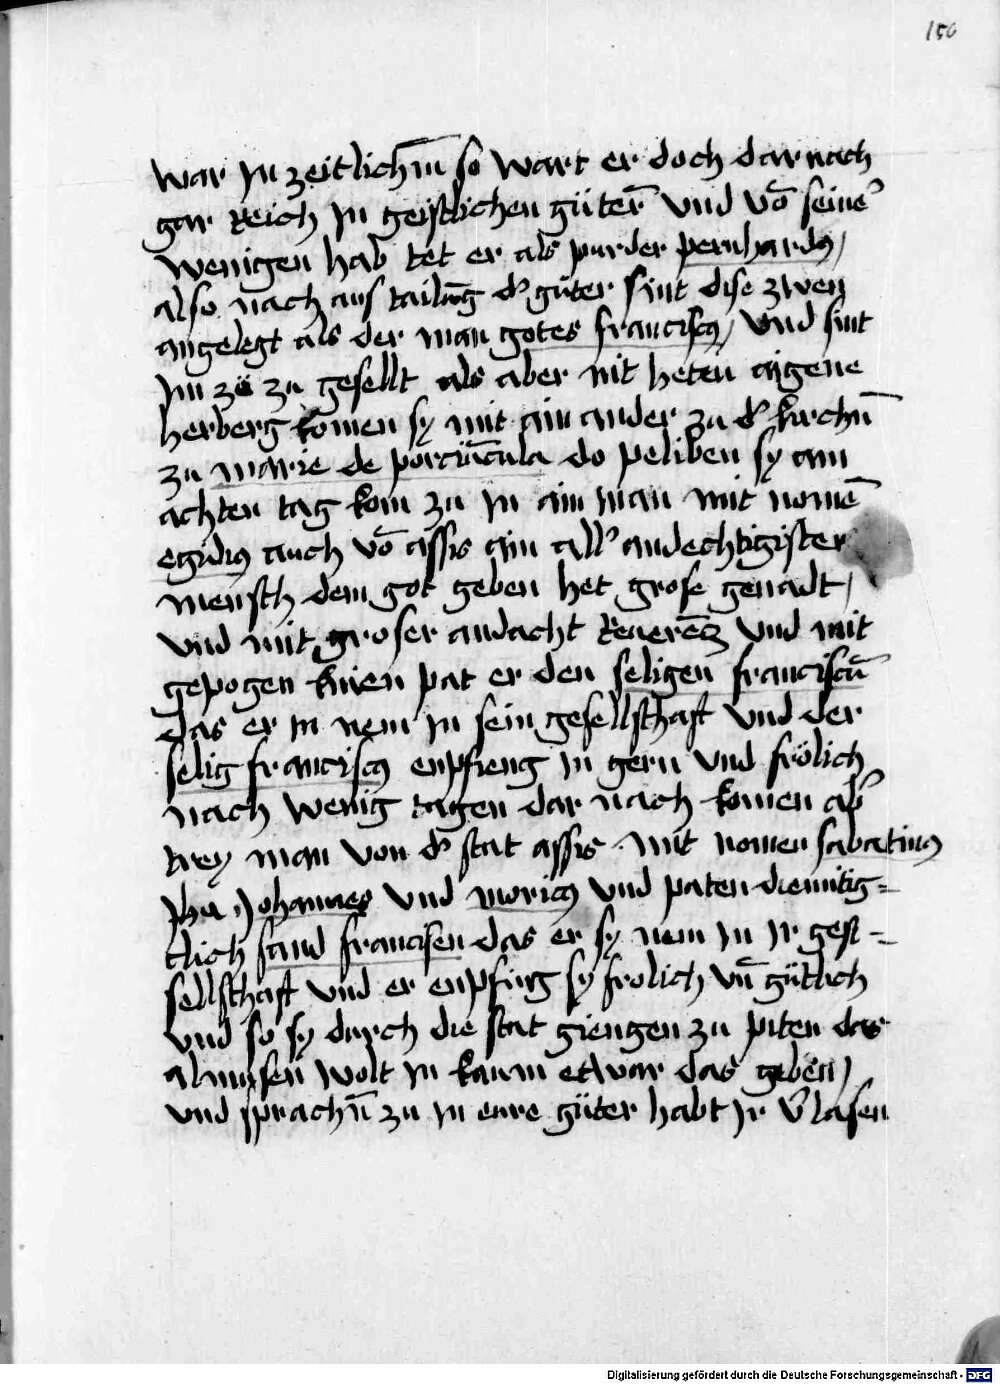 150
war in zeitlichm̄ so wart er doch dar nach
gar Reich in geistlichen gütern̄ vnd vō seine᷑
wenigen hab tet er als pruder pernhardꝰ /
also nach aus tailūg d᷑ güter sint dise zwen
angelegt als der man gotes franciscꝰ / vnd sint
im zü zu gesellt als aber nit heten aigene
herberg komen sy mit ain ander zu d᷑ kirchn̄
zu marie de porciūcula do peliben sy am
achten tag kom zu in ain man mit nomē
egidiꝰ auch vō assis ain all᷑ andechtigister
mensch dem got geben het grose genadt /
vnd mit groser andacht Reuerēcz vnd mit
gepogen knien pat er den seligen franciscū
das er in nem in sein gesellschaft vnd der
selig franciscꝰ enpfieng in gern vnd frölich
nach wenig tagen dar nach komen ab᷑
trey man von d᷑ stat assis mit nomen sabatinꝰ
Johannes vnd moricꝰ vnd paten diemütig=
tlich sand francisen das er sy nem in ir gese=
sellschaft vnd er enpfing sy frolich vn̄ gütlich
vnd so sy durch die stat giengen zu piten das
almusen wolt in kaum etwar das geben /
vnd sprachn̄ zu in eure güter habt ir v᷑lasen
Digitalisierung gefördert durch die Deutsche Forschungsgemeinschaft - DFG